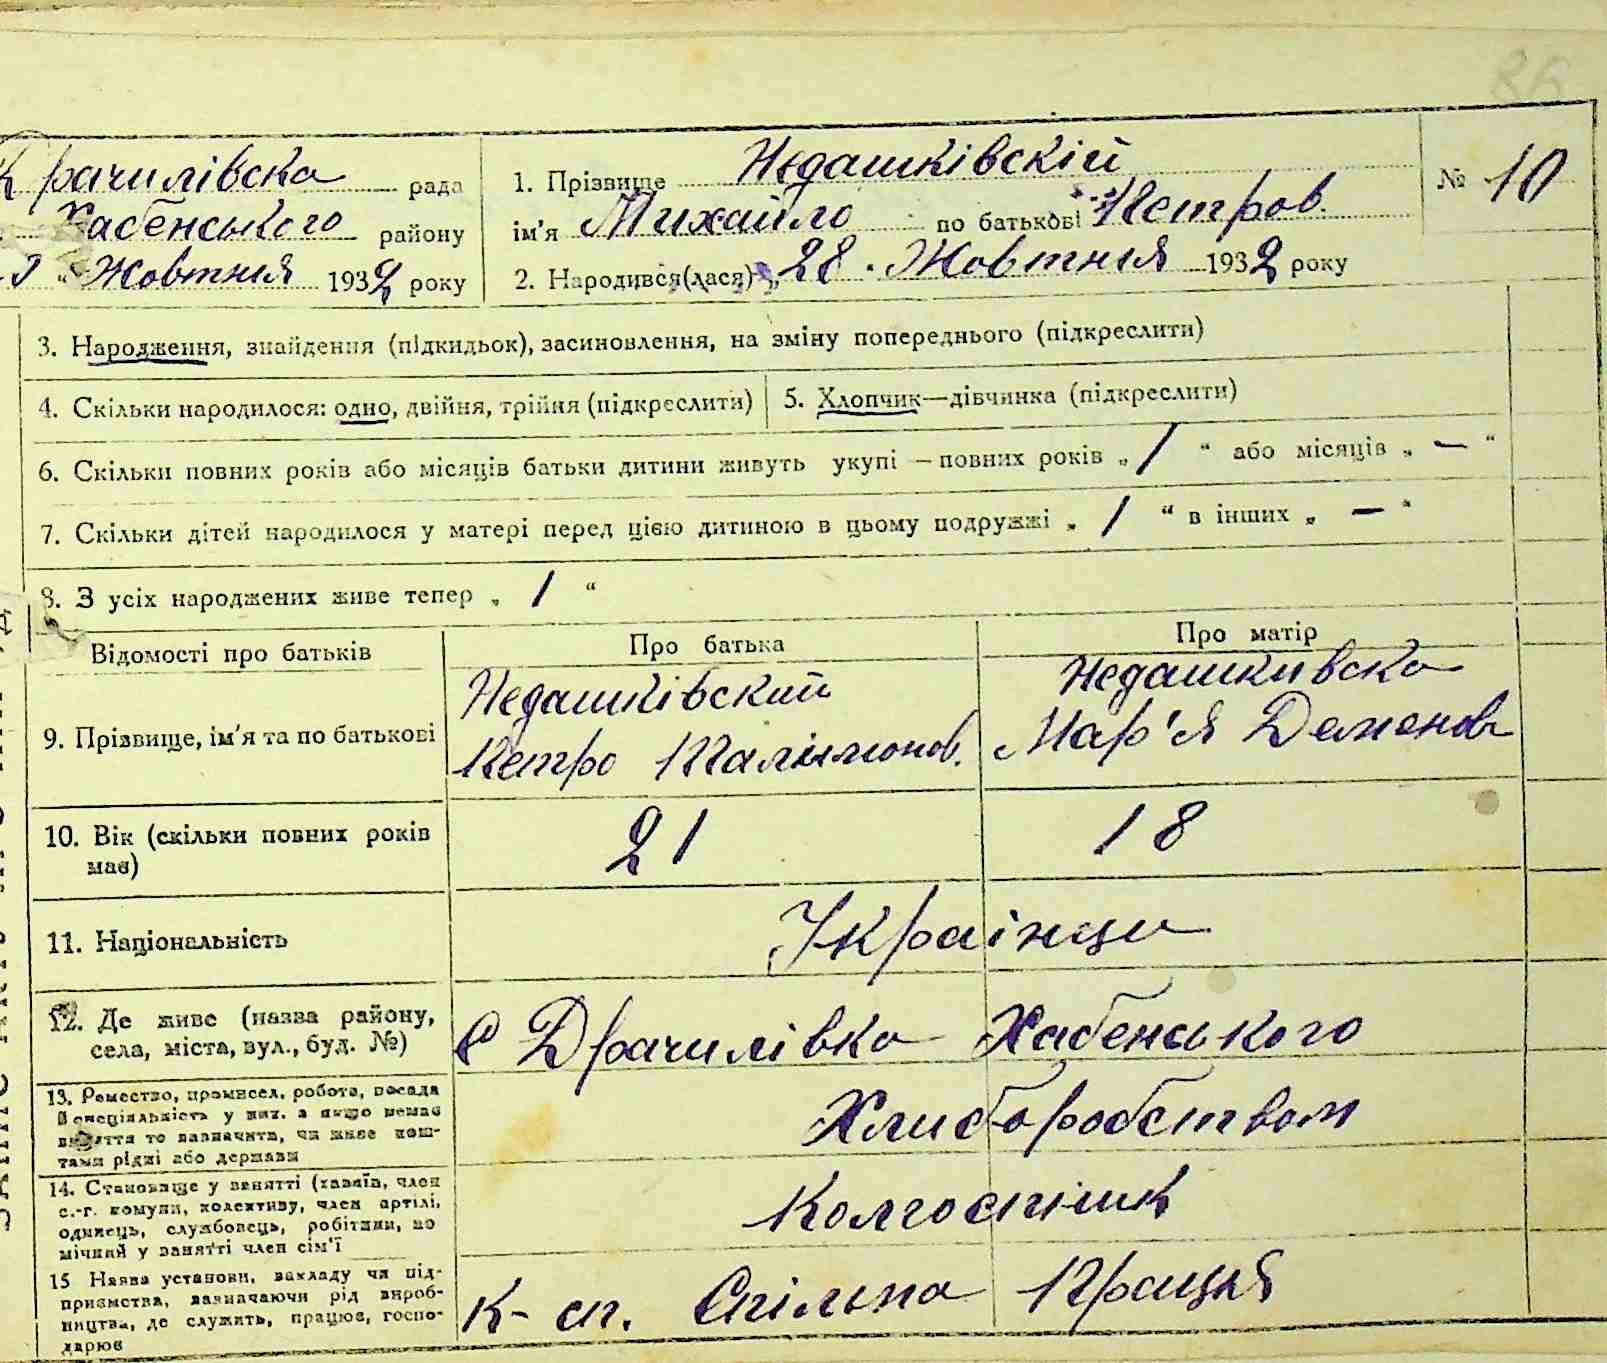 86
рачилівска рада
Хабенського району
Жовтня 1932 року
1. Прізвище Недашківскій
ім'я Михайло по батькові Петров.
2. Народився(лася) „28 Жовтня 1932 року
№ 10
3. Народження, знайдення (підкидьок), засиновлення, на зміну попереднього (підкреслити)
4. Скільки народилося: одно, двійня, трійня (підкреслити)
5. Хлопчик—дівчинка (підкреслити)
6. Скільки повних років або місяців батьки дитини живуть укупі — повних років „ 1 “ або місяців „ — “
7. Скільки дітей народилося у матері перед цією дитиною в цьому подружжі „ 1 “ в інших „ — “
8. З усіх народжених живе тепер „ 1 “
Відомості про батьків
Про батька
Про матір
9. Прізвище, ім'я та по батькові
Недашківский
Петро Талімонов.
Недашкивска
Мар'я Деменов
10. Вік (скільки повних років
має)
21
18
11. Національність
Українци
12. Де живе (назва району,
села, міста, вул., буд. №)
с Драчилівка Хабенського
13. Ремество, промисел, робота, посада
й спеціяльність у них, а якщо немає
заняття то зазначити, чи живе кош-
тами рідні або держави
Хлиборобством
14. Становище у занятті (хазяїн, член
с.-г. комуни, колективу, член артілі,
одинець, службовець, робітник, по
мічний у занятті член сім'ї
Колгоспник
15 Назва установи, закладу чи під-
приємства, зазначаючи рід вироб-
ництва, де служить, працює, госпо-
дарює
К-сп. Спільна Праця